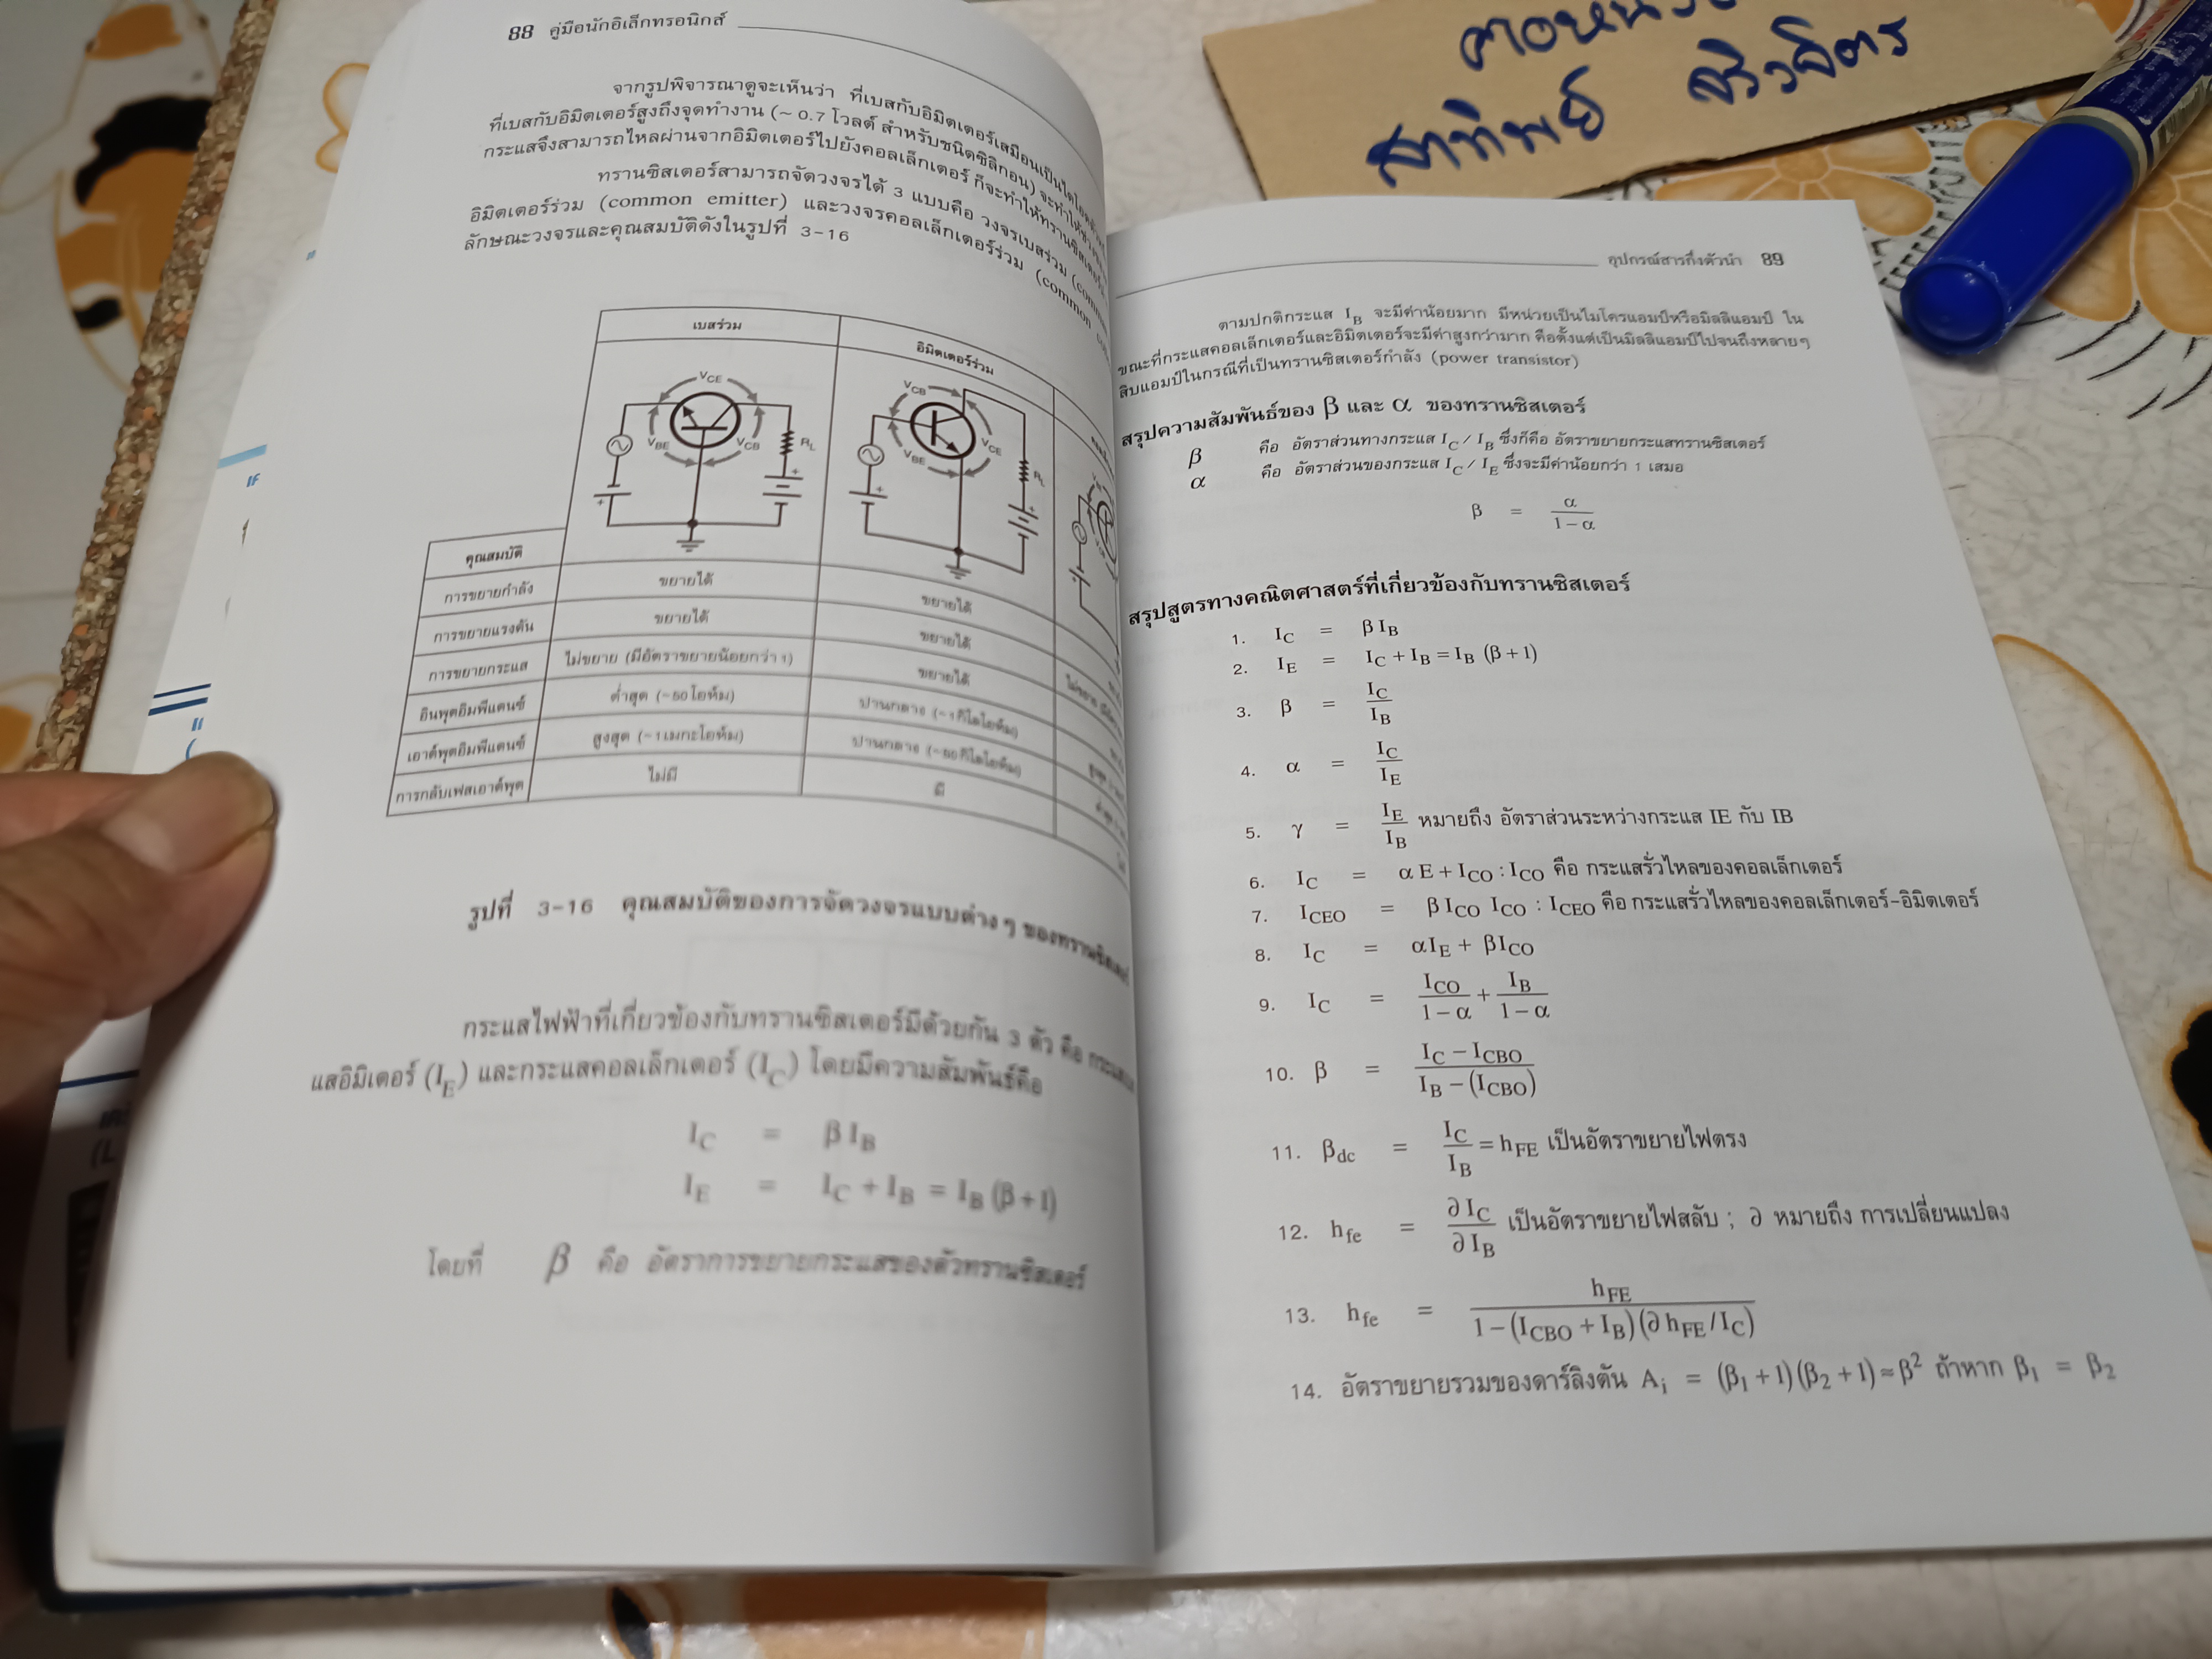 88 คู่มือนักอิเล็กทรอนิกส์
จากรูปพิจารณาดูจะเห็นว่า ที่เบสกับอิมิตเตอร์เสมือนเป็นไดโอด
ที่เบสกับอิมิตเตอร์สูงถึงจุดทำงาน (~ 0.7 โวลต์ สำหรับชนิดซิลิกอน) จะทำให้
กระแสจึงสามารถไหลผ่านจากอิมิตเตอร์ไปยังคอลเล็กเตอร์ ก็จะทำให้ทรานซิสเตอร์
ทรานซิสเตอร์สามารถจัดวงจรได้ 3 แบบคือ วงจรเบสร่วม
อิมิตเตอร์ร่วม (common emitter) และวงจรคอลเล็กเตอร์ร่วม (common
ลักษณะวงจรและคุณสมบัติดังในรูปที่ 3-16
เบสร่วม
อิมิตเตอร์ร่วม
VCE
VBE
VCB
RL
VCB
VBE
VCE
RL
คุณสมบัติ
การขยายกำลัง ขยายได้ ขยายได้
การขยายแรงดัน ขยายได้ ขยายได้
การขยายกระแส ไม่ขยาย (มีอัตราขยายน้อยกว่า 1) ขยายได้
อินพุตอิมพีแดนซ์ ต่ำสุด (~50 โอห์ม) ปานกลาง (~1 กิโลโอห์ม)
เอาต์พุตอิมพีแดนซ์ สูงสุด (~1 เมกะโอห์ม) ปานกลาง (~50 กิโลโอห์ม)
การกลับเฟสเอาต์พุต ไม่มี มี
รูปที่ 3-16 คุณสมบัติของการจัดวงจรแบบต่างๆ ของทรานซิสเตอร์
กระแสไฟฟ้าที่เกี่ยวข้องกับทรานซิสเตอร์มีด้วยกัน 3 ตัว คือ
แสอิมิเตอร์ (IE) และกระแสคอลเล็กเตอร์ (IC) โดยมีความสัมพันธ์คือ
IC = β IB
IE = IC + IB = IB (β + 1)
โดยที่ β คือ อัตราการขยายกระแสของตัวทรานซิสเตอร์
ตอหน
สาทิพย์
อุปกรณ์สารกึ่งตัวนำ 89
ตามปกติกระแส IB จะมีค่าน้อยมาก มีหน่วยเป็นไมโครแอมป์หรือมิลลิแอมป์ ใน
ขณะที่กระแสคอลเล็กเตอร์และอิมิตเตอร์จะมีค่าสูงกว่ามาก คือตั้งแต่เป็นมิลลิแอมป์ไปจนถึงหลายๆ
สิบแอมป์ในกรณีที่เป็นทรานซิสเตอร์กำลัง (power transistor)
สรุปความสัมพันธ์ของ β และ α ของทรานซิสเตอร์
β คือ อัตราส่วนทางกระแส IC / IB ซึ่งก็คือ อัตราขยายกระแสทรานซิสเตอร์
α คือ อัตราส่วนของกระแส IC / IE ซึ่งจะมีค่าน้อยกว่า 1 เสมอ
β = α / 1 − α
สรุปสูตรทางคณิตศาสตร์ที่เกี่ยวข้องกับทรานซิสเตอร์
1. IC = β IB
2. IE = IC + IB = IB (β + 1)
3. β = IC / IB
4. α = IC / IE
5. γ = IE / IB หมายถึง อัตราส่วนระหว่างกระแส IE กับ IB
6. IC = α E + ICO : ICO คือ กระแสรั่วไหลของคอลเล็กเตอร์
7. ICEO = β ICO ICO : ICEO คือ กระแสรั่วไหลของคอลเล็กเตอร์-อิมิตเตอร์
8. IC = αIE + βICO
9. IC = ICO / 1 − α + IB / 1 − α
10. β = IC − ICBO / IB − (ICBO)
11. βdc = IC / IB = hFE เป็นอัตราขยายไฟตรง
12. hfe = ∂ IC / ∂ IB เป็นอัตราขยายไฟสลับ ; ∂ หมายถึง การเปลี่ยนแปลง
13. hfe = hFE / 1 − (ICBO + IB) (∂ hFE / IC)
14. อัตราขยายรวมของดาร์ลิงตัน Ai = (β1 + 1) (β2 + 1) ≈ β² ถ้าหาก β1 = β2